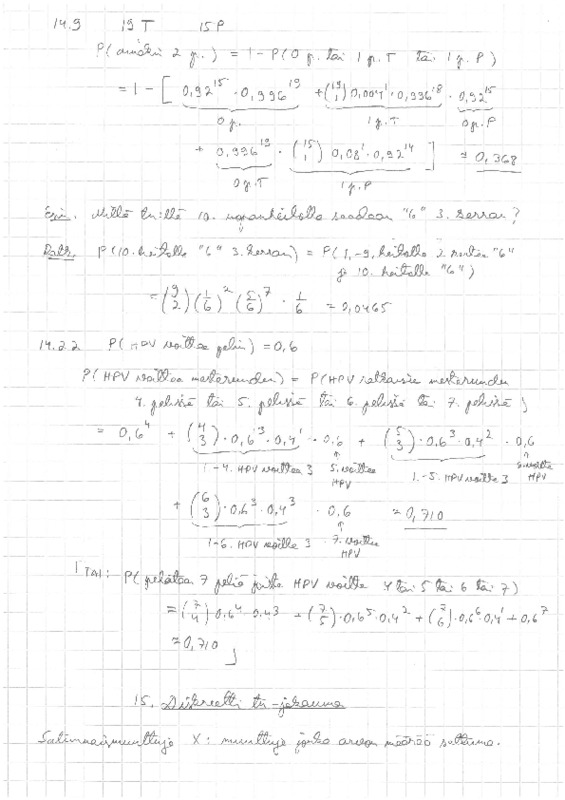 14.9 19 T 15 P
P(ainakin 2 p.) = 1 - P(0 p. tai 1 p. T tai 1 p. P)
= 1 - [ 0,92^15 · 0,996^19 + (19 1) 0,004^1 · 0,996^18 · 0,92^15
0 p. 1 p. T 0 p. P
+ 0,996^19 · (15 1) 0,08^1 · 0,92^14 ] ≈ 0,368
0 p. T 1 p. P
Esim. Millä tn:llä 10. nopanheitolla saadaan "6" 3. kerran?
Ratk. P(10. heitolla "6" 3. kerran) = P(1.-9. heitolla 2 kertaa "6"
ja 10. heitolla "6")
= (9 2) (1/6)^2 (5/6)^7 · 1/6 ≈ 0,0465
14.22 P(HPV voittaa pelin) = 0,6
P(HPV voittaa mestaruuden) = P(HPV ratkaisee mestaruuden
4. pelissä tai 5. pelissä tai 6. pelissä tai 7. pelissä)
= 0,6^4 + (4 3) · 0,6^3 · 0,4^1 · 0,6 + (5 3) · 0,6^3 · 0,4^2 · 0,6
1.-4. HPV voittaa 3 5. voittaa HPV 1.-5. HPV voittaa 3 6. voittaa HPV
+ (6 3) · 0,6^3 · 0,4^3 · 0,6 ≈ 0,710
1-6. HPV voittaa 3 7. voittaa HPV
TAI: P(pelataan 7 peliä joista HPV voittaa 4 tai 5 tai 6 tai 7)
= (7 4) · 0,6^4 · 0,4^3 + (7 5) · 0,6^5 · 0,4^2 + (7 6) · 0,6^6 · 0,4^1 + 0,6^7
≈ 0,710
15. Diskreetti tn-jakauma
Satunnaismuuttuja X: muuttuja jonka arvon määrää sattuma.